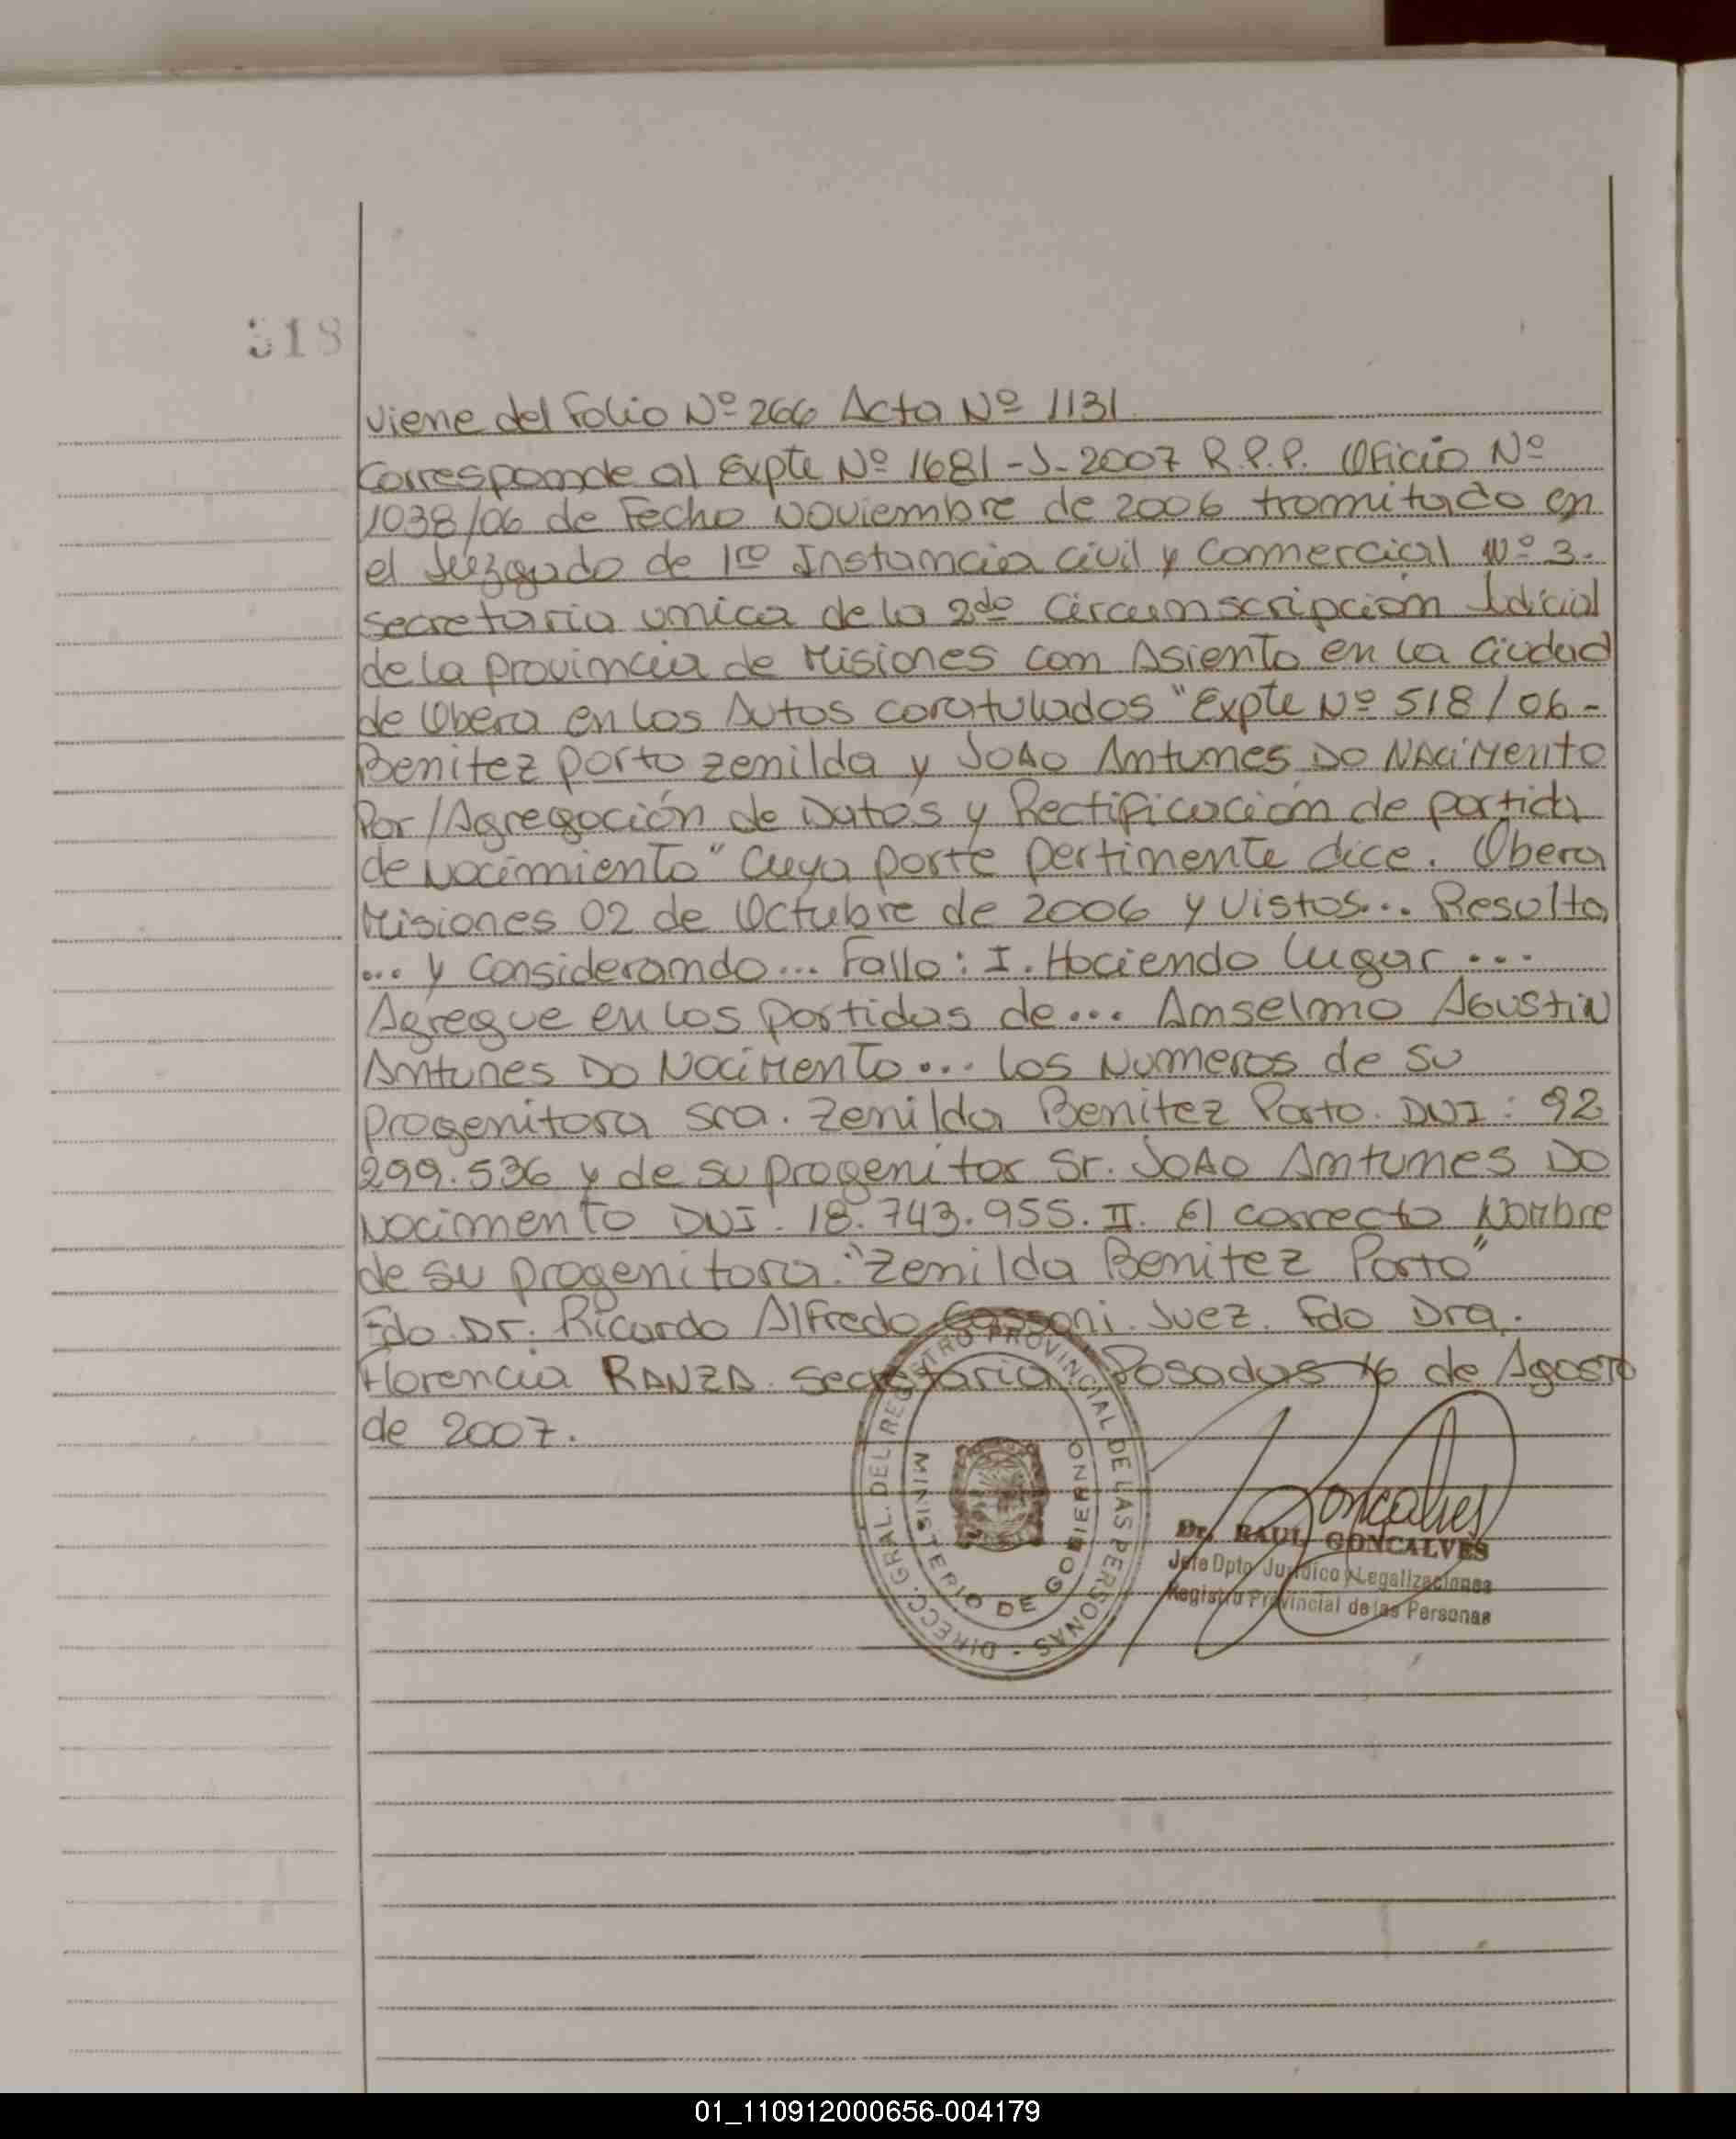 318
Viene del Folio Nº 266 Acta Nº 1131
Corresponde al Expte Nº 1681-J-2007 R.P.P. Oficio Nº
1038/06 de Fecha Noviembre de 2006 tramitado en
el Juzgado de 1ra Instancia Civil y Commercial Nº 3.
Secretaria unica de la 2da Circunscripción Jdicial
de la provincia de Misiones con Asiento en la Ciudad
de Obera en los Autos caratulados "Expte Nº 518/06-
Benitez porto zenilda y JOAO Antunes DO NACiMento
Por/Agregación de Datos y Rectificación de partida
de Nacimiento" Cuya parte pertinente dice. Obera
Misiones 02 de Octubre de 2006 y Vistos... Resulta
... y Considerando... Fallo: I. Haciendo lugar ...
Agregue en los partidas de... Anselmo AGUStiN
Antunes DO NaciMento... los Numeros de su
progenitora sra. Zenilda Benitez Porto. DNI: 92
299.536 y de su progenitor Sr. JOAO Antunes DO
Nacimento DNI. 18.743.955. II. El correcto Nombre
de su progenitora. "Zenilda Benitez Porto"
Fdo. Dr. Ricardo Alfredo Cassoni. Juez. Fdo Dra.
Florencia RANZA. Secretaria. Posadas 16 de Agosto
de 2007.
DIRECC. GRAL. DEL REGISTRO PROVINCIAL DE LAS PERSONAS -
MINISTERIO DE GOBIERNO
Goncalves
Dr. RAUL GONCALVES
Jefe Dpto. Jurídico y Legalizaciones
Registro Provincial de las Personas
01_110912000656-004179